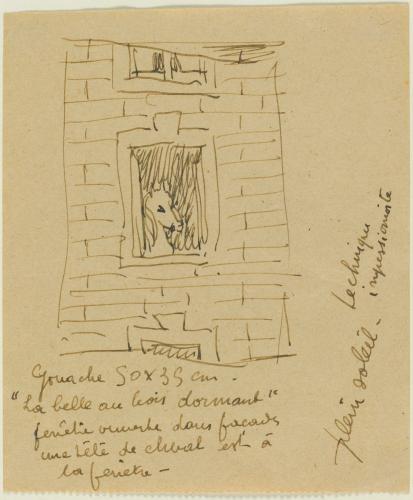 Gouache 50 x 35 cm -
"La belle au bois dormant"
fenêtre ouverte dans façade
une tête de cheval est à
la fenêtre -
plein soleil - technique
impressionniste